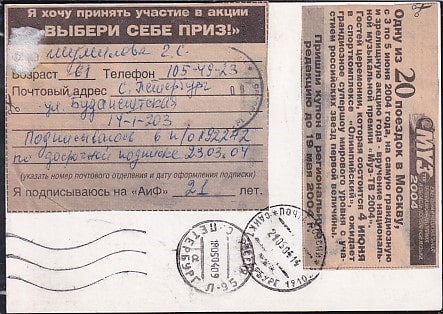 Я хочу принять участие в акции
«ВЫБЕРИ СЕБЕ ПРИЗ!»
Шумилова Е.С.
Возраст 61 Телефон 105-49-23
Почтовый адрес С. Петербург
ул. Будапештская
14-1-203
Подписываюсь в п/о 192242
по досрочной подписке 23.03.04
(указать номер почтового отделения и дату оформления подписки)
Я подписываюсь на «АиФ» 21 лет.
Одну из
20
поездок в Москву,
с 3 по 5 июня 2004 года, на самую грандиозную
и зрелищную акцию года - церемонию националь-
ной музыкальной премии «Муз-ТВ 2004».
Гостей церемонии, которая состоится 4 июня
в спорткомплексе «Олимпийский», ожидает
грандиозное супершоу мирового уровня с уча-
стием российских звезд первой величины.
Пришли купон в региональную
редакцию до 19 мая 2004 г.
МУЗ
2004
С-ПЕТЕРБУРГ Л-95
180504
САНКТ-ПЕТЕРБУРГ
210504-14